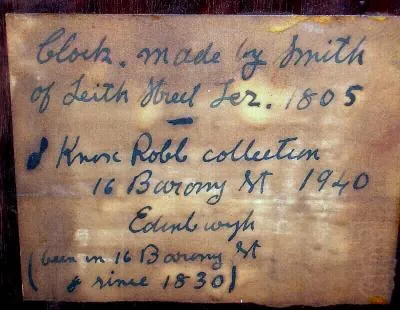 Clock. made by Smith
of Leith Street Ter. 1805
J Knox Robb collection
16 Barony St 1940
Edinburgh
(been in 16 Barony St
& since 1830)